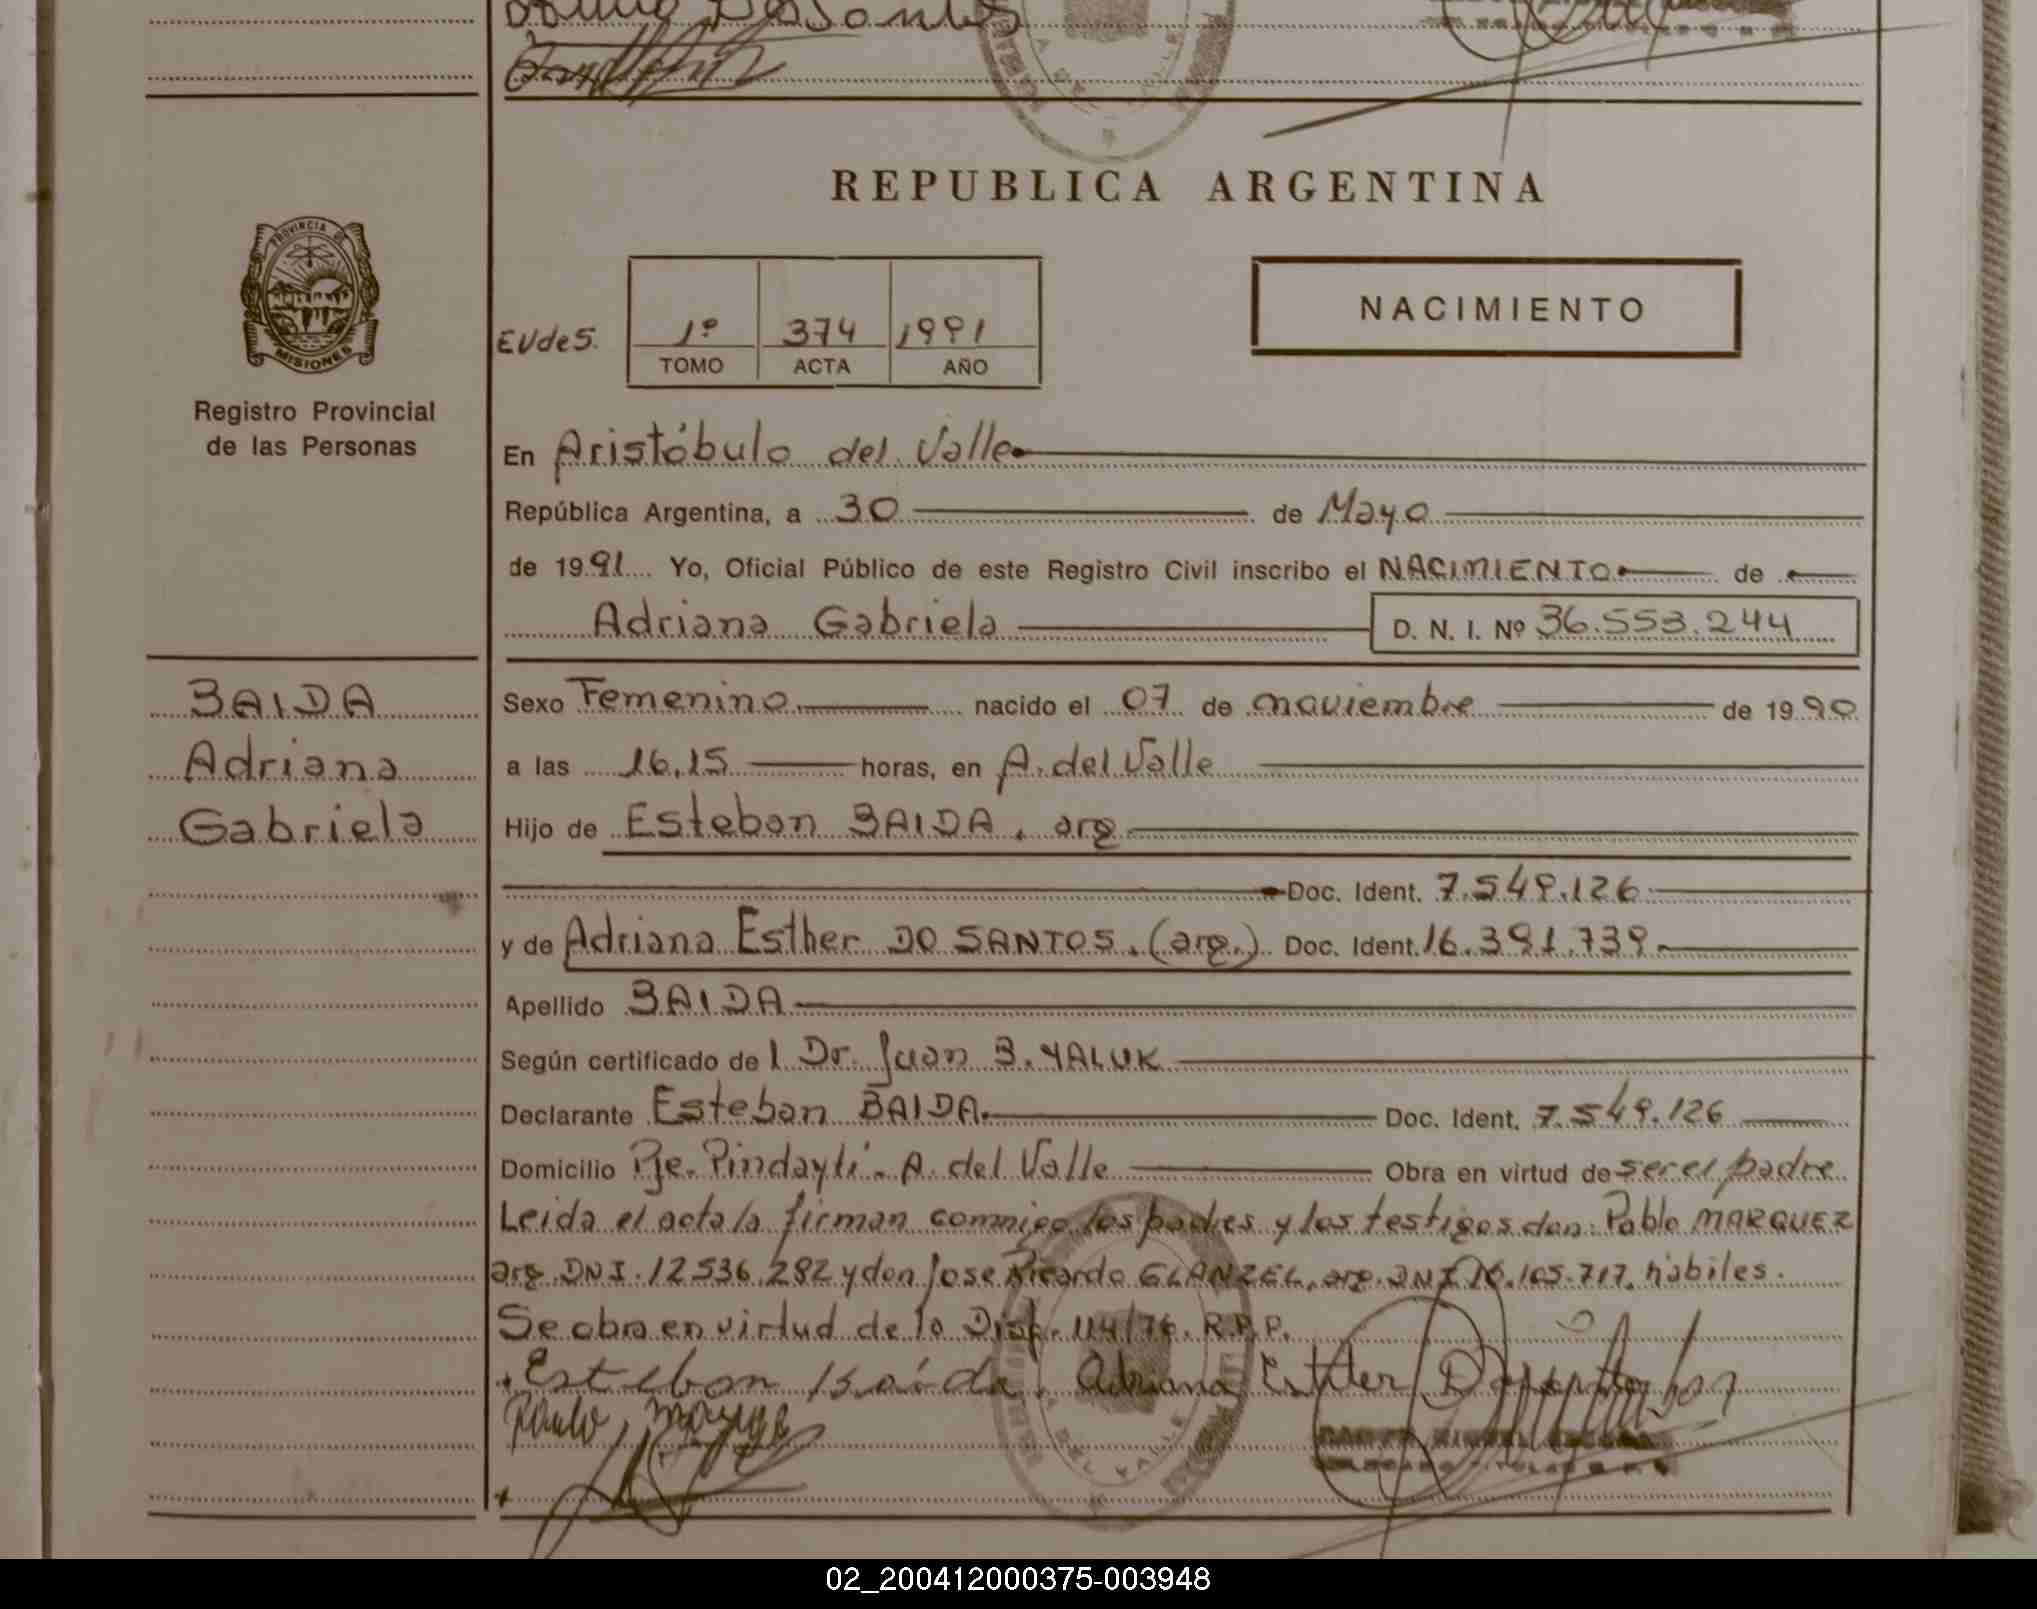 PROVINCIA DE
MISIONES
Registro Provincial
de las Personas
REPUBLICA ARGENTINA
NACIMIENTO
EUdeS. 1º 374 1991
TOMO ACTA AÑO
En Aristóbulo del Valle
República Argentina, a 30 de Mayo
de 1991 Yo, Oficial Público de este Registro Civil inscribo el NACIMIENTO de
Adriana Gabriela D. N. I. Nº 36.553.244
BAIDA
Adriana
Gabriela
Sexo Femenino nacido el 07 de noviembre de 1990
a las 16,15 horas, en A. del Valle
Hijo de Esteban BAIDA. arg
Doc. Ident. 7.549.126
y de Adriana Esther DO SANTOS. (arg.) Doc. Ident. 16.391.739.
Apellido BAIDA
Según certificado de l Dr. Juan B. YALUK
Declarante Esteban BAIDA. Doc. Ident. 7.549.126
Domicilio Pje. Pindaytí - A. del Valle Obra en virtud de ser el padre
Leida el acta la firman conmigo los padres y los testigos don: Pablo MARQUEZ
arg. DNI. 12536.282 y don Jose Ricardo GLANZEL, arg. DNI 16.165.717. hábiles.
Se obra en virtud de la Disp. 114/76. R.P.P.
Esteban Baida. Adriana Esther
DEL VALLE
02_200412000375-003948